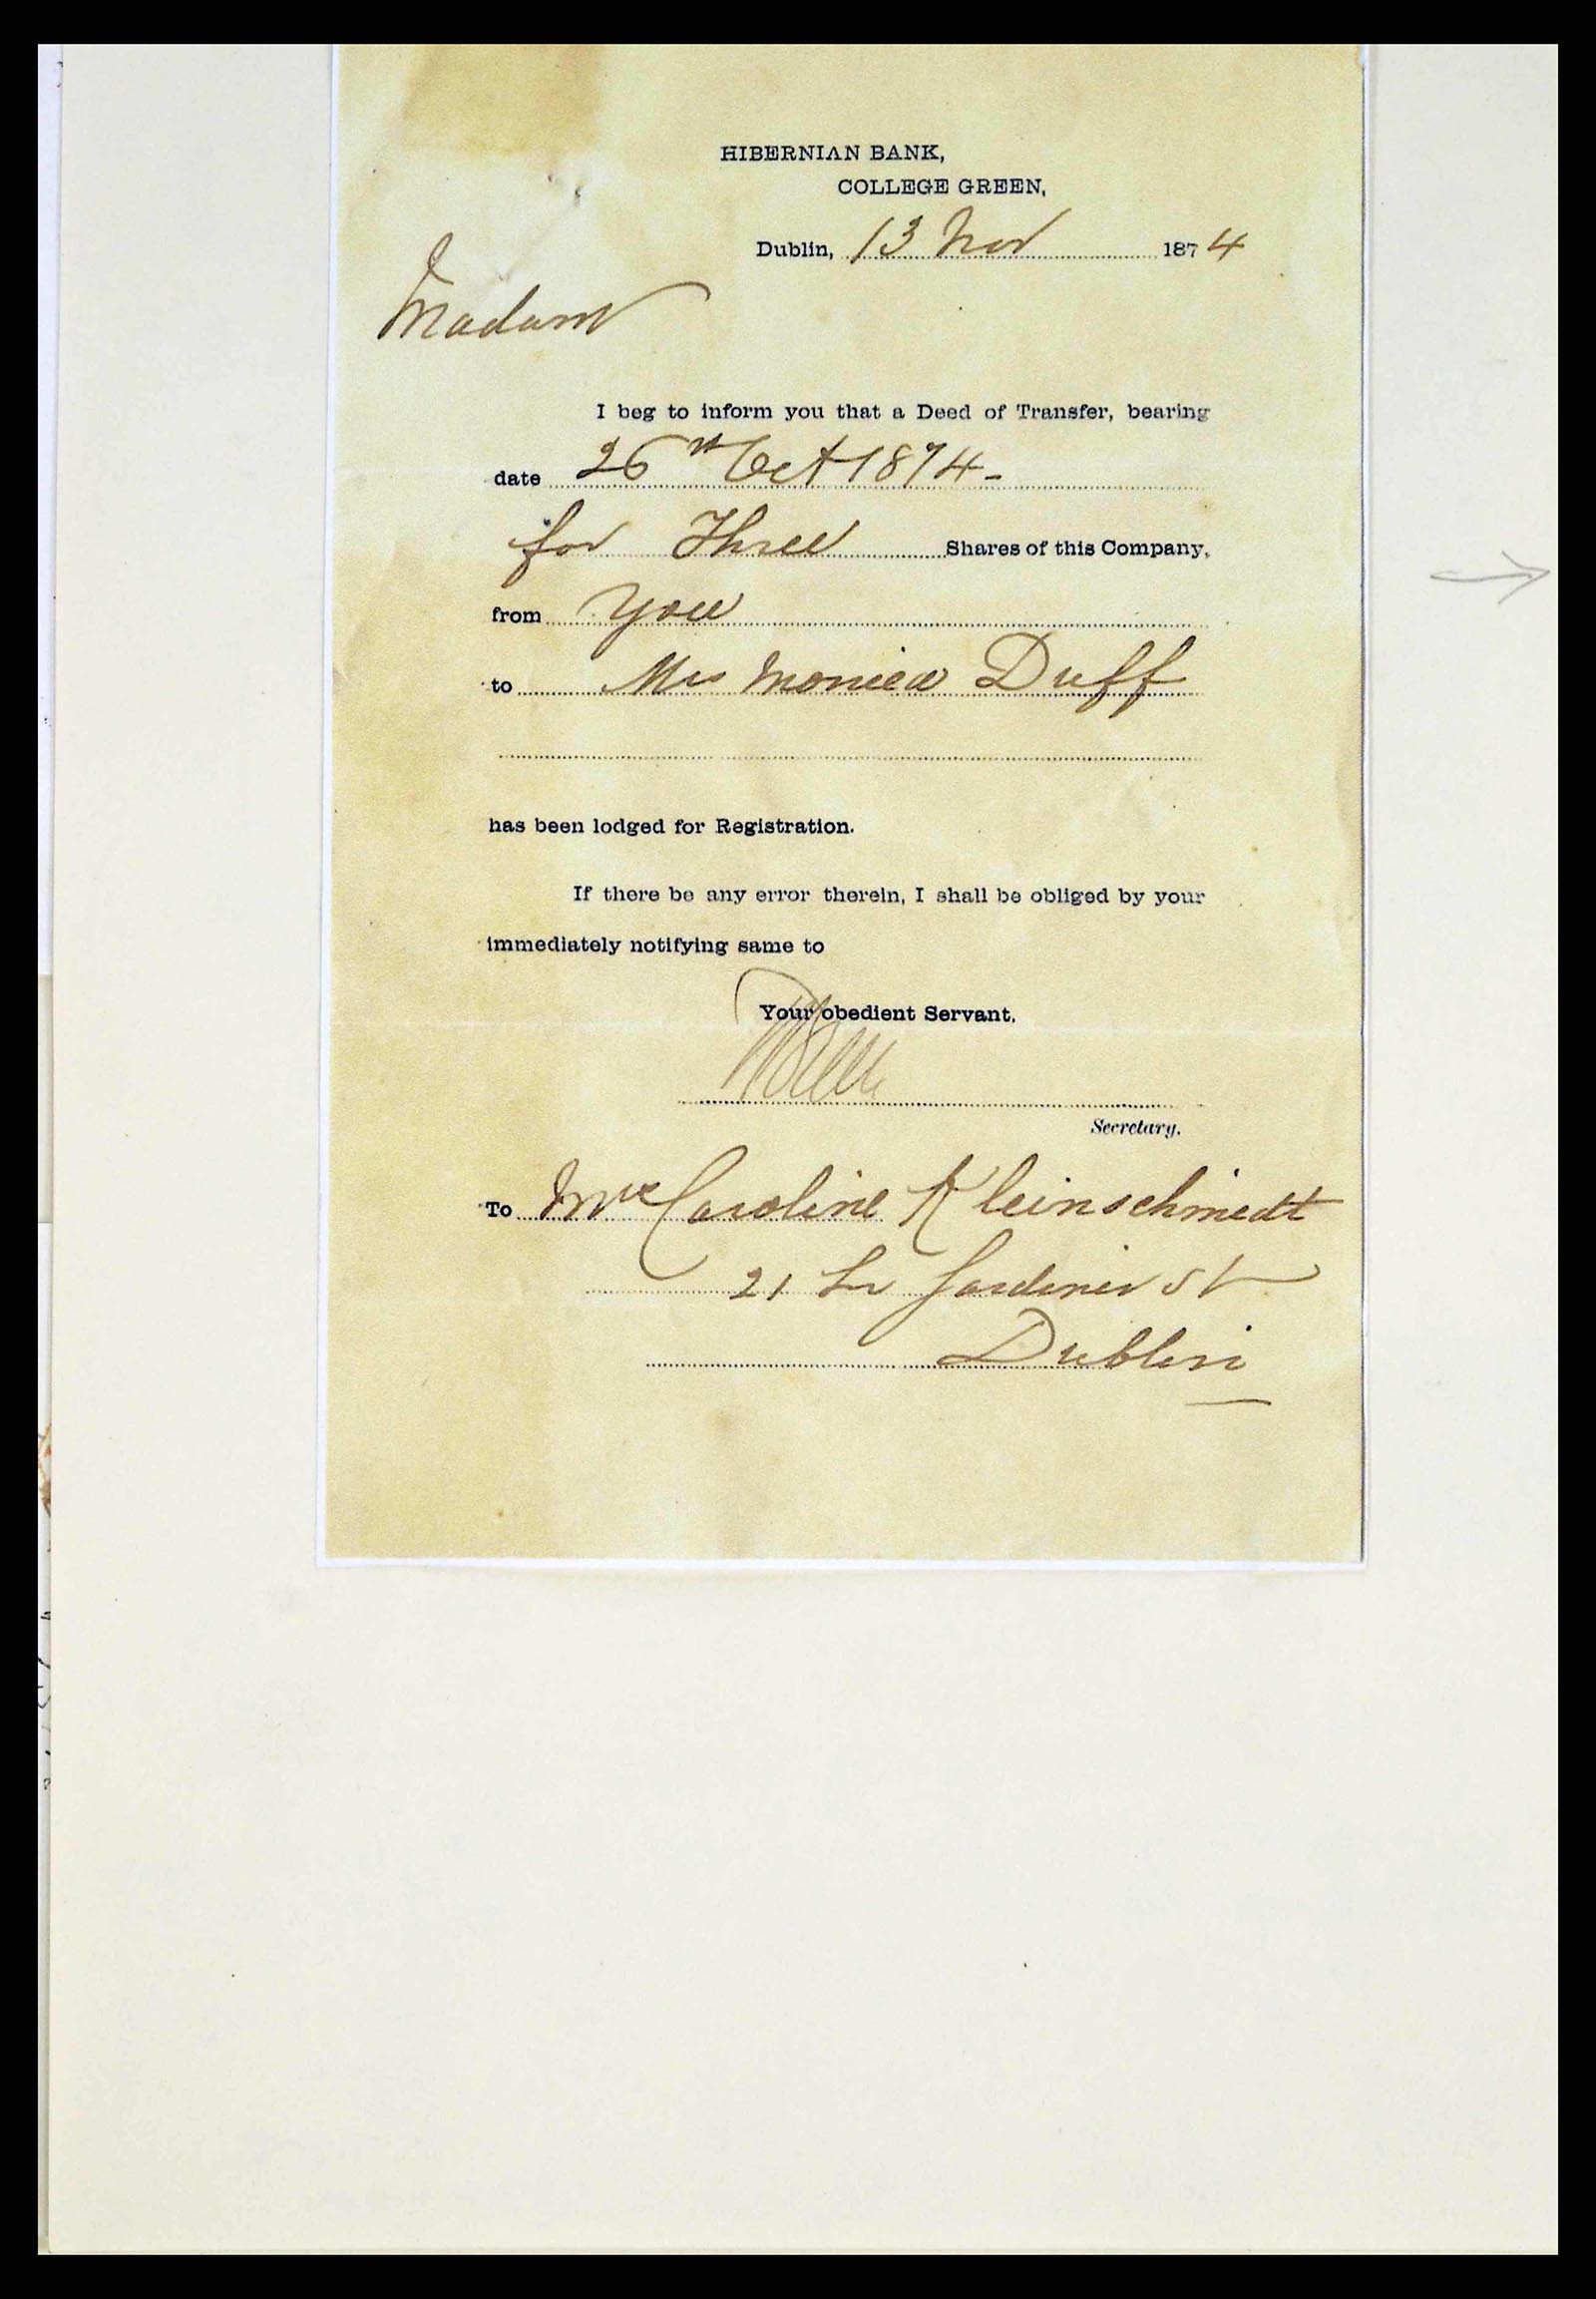 HIBERNIAN BANK,
COLLEGE GREEN,
Dublin, 13 Nov 1874
Madam
I beg to inform you that a Deed of Transfer, bearing
date 26th Oct 1874-
for Three Shares of this Company,
from you
to Mrs Monica Duff
has been lodged for Registration.
If there be any error therein, I shall be obliged by your
immediately notifying same to
Your obedient Servant.
Secretary.
To Caroline Kleinschmidt
21 Lr Gardiner St
Dublin